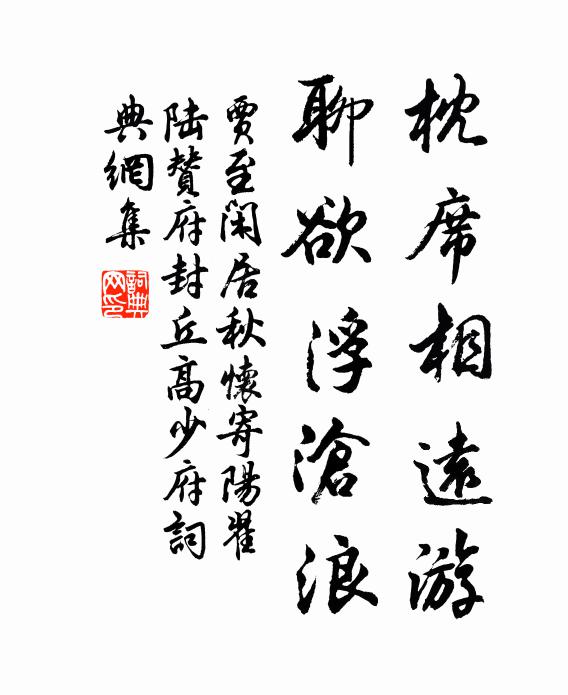 枕席相遠游
聊欲浮滄浪
賈至閑居秋懷寄陽翟
陸贊府封丘高少府詞
典網集
詞典
网印